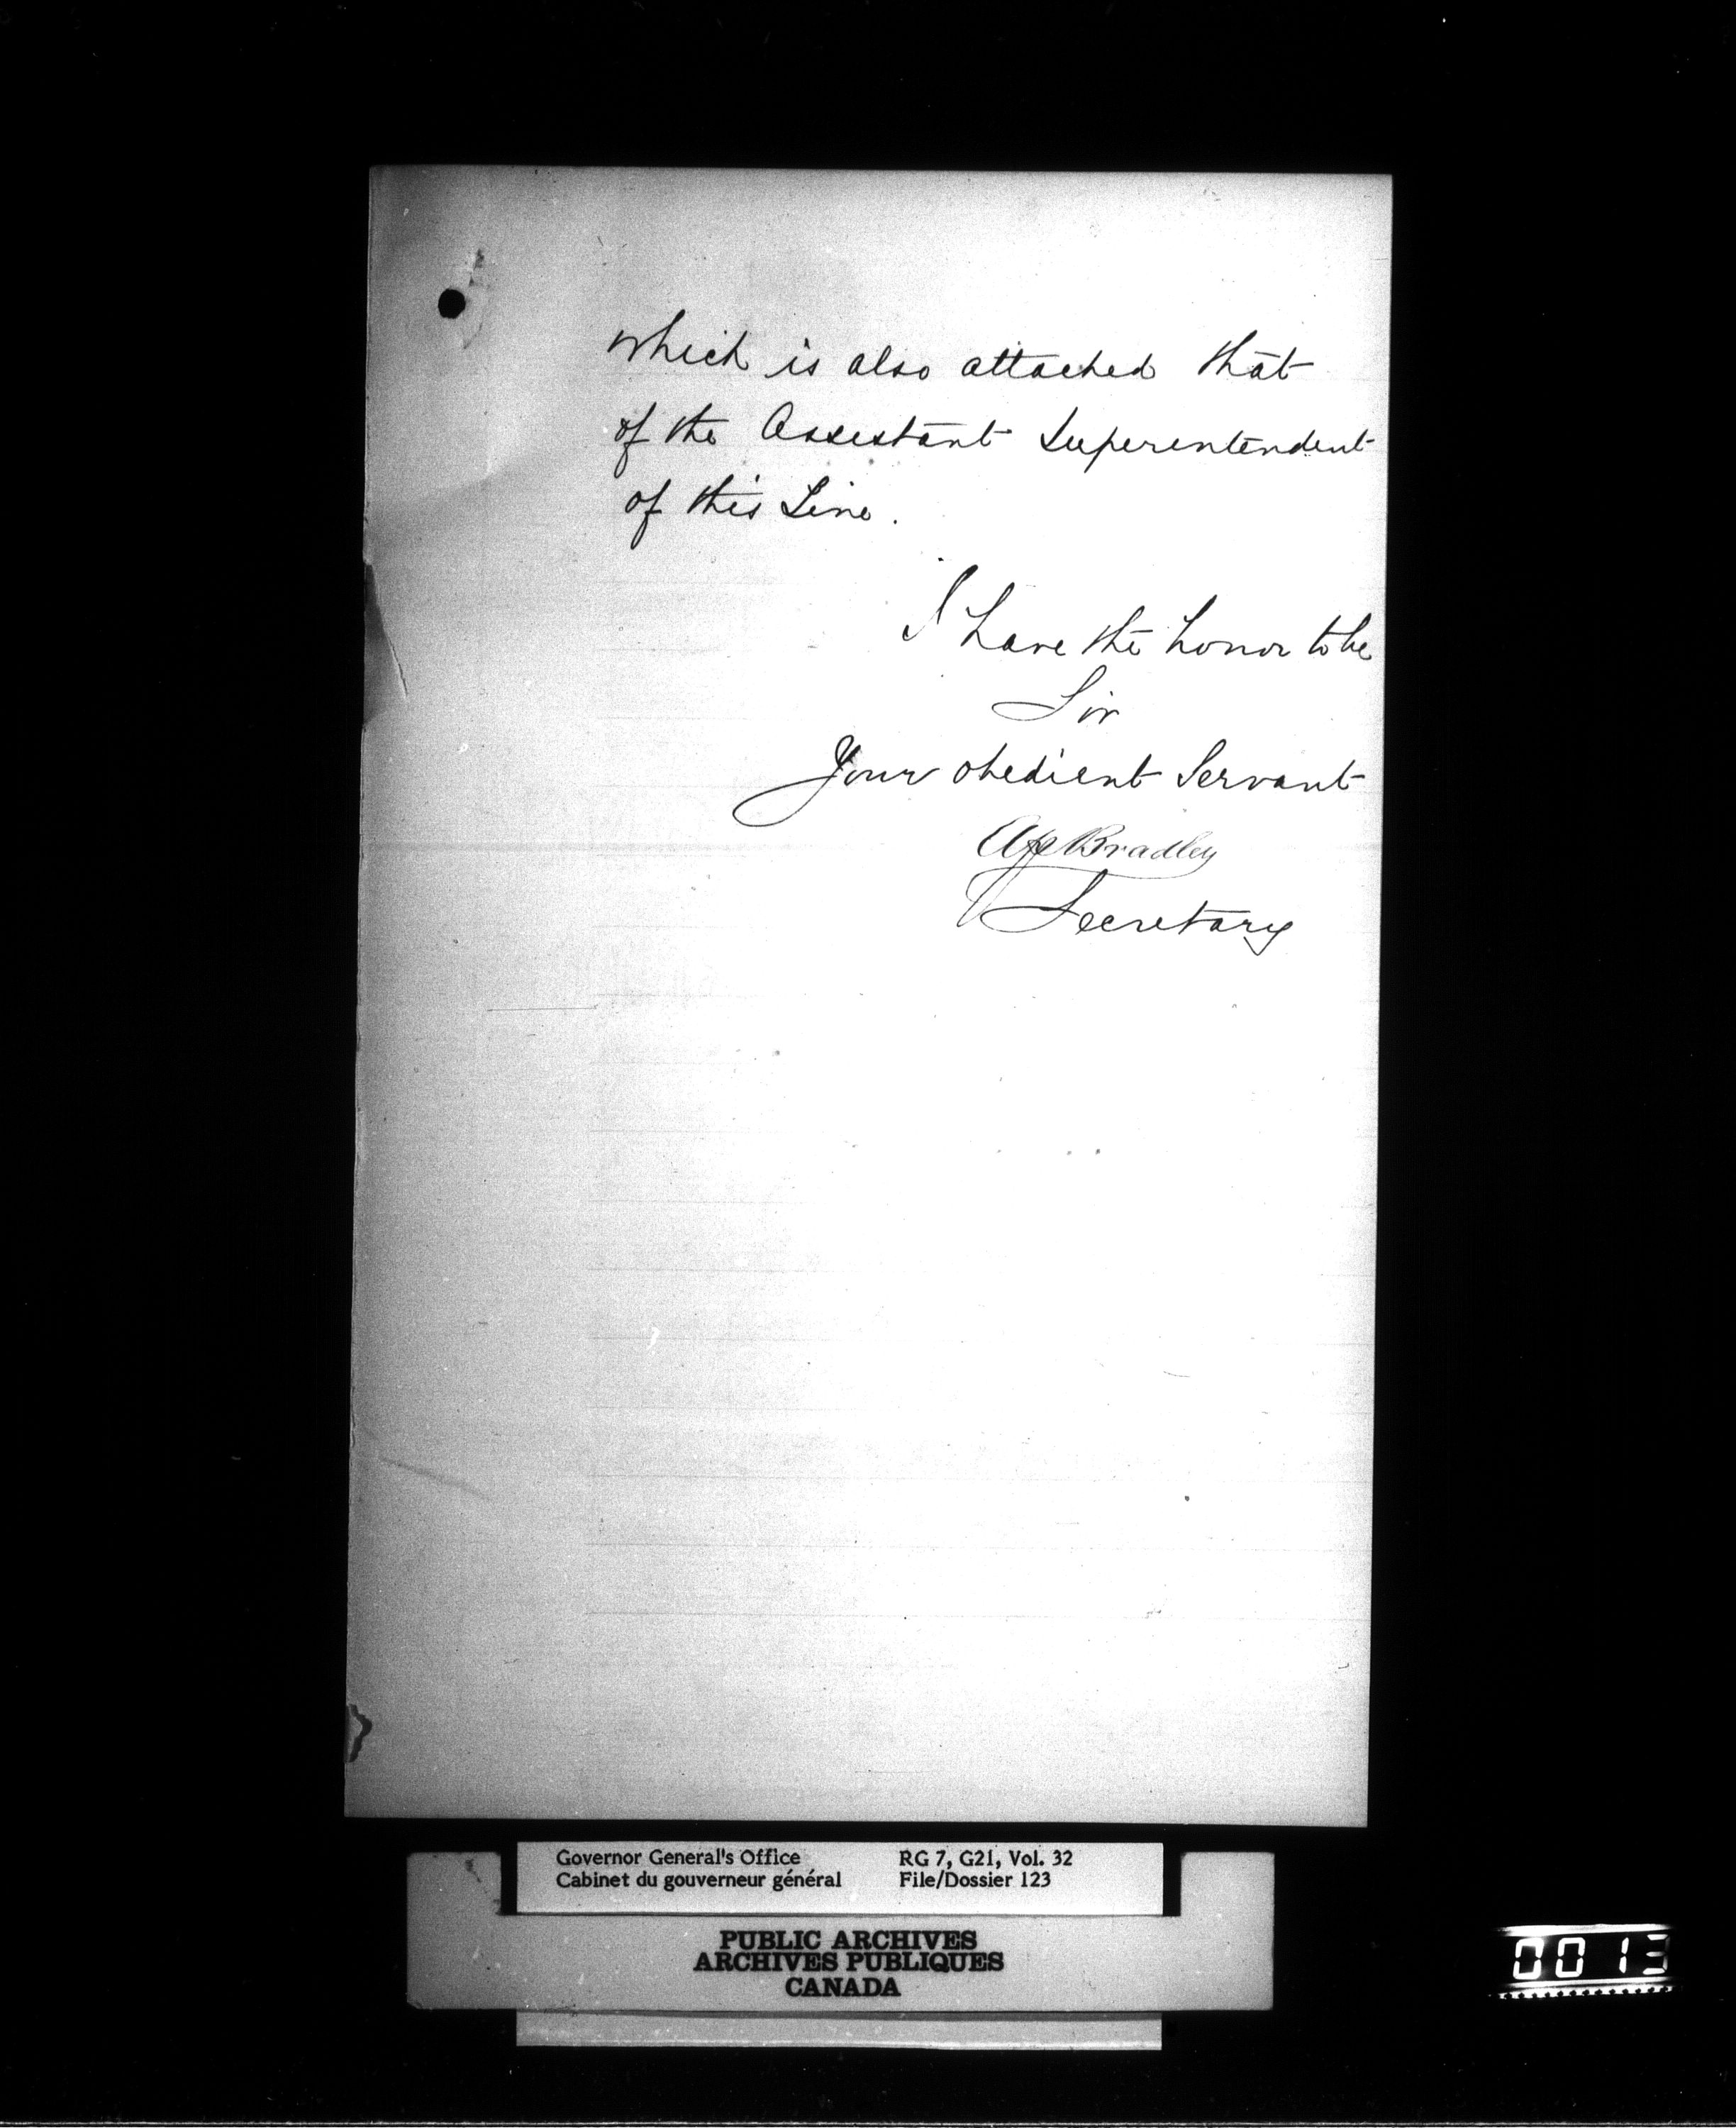 which is also attached that
of the Assistant Superintendent
of this Line.
I have the honor to be
Sir
Your obedient Servant
AP Bradley
Secretary
Governor General's Office
Cabinet du gouverneur général
RG 7, G21, Vol. 32
File/Dossier 123
PUBLIC ARCHIVES
ARCHIVES PUBLIQUES
CANADA
0013